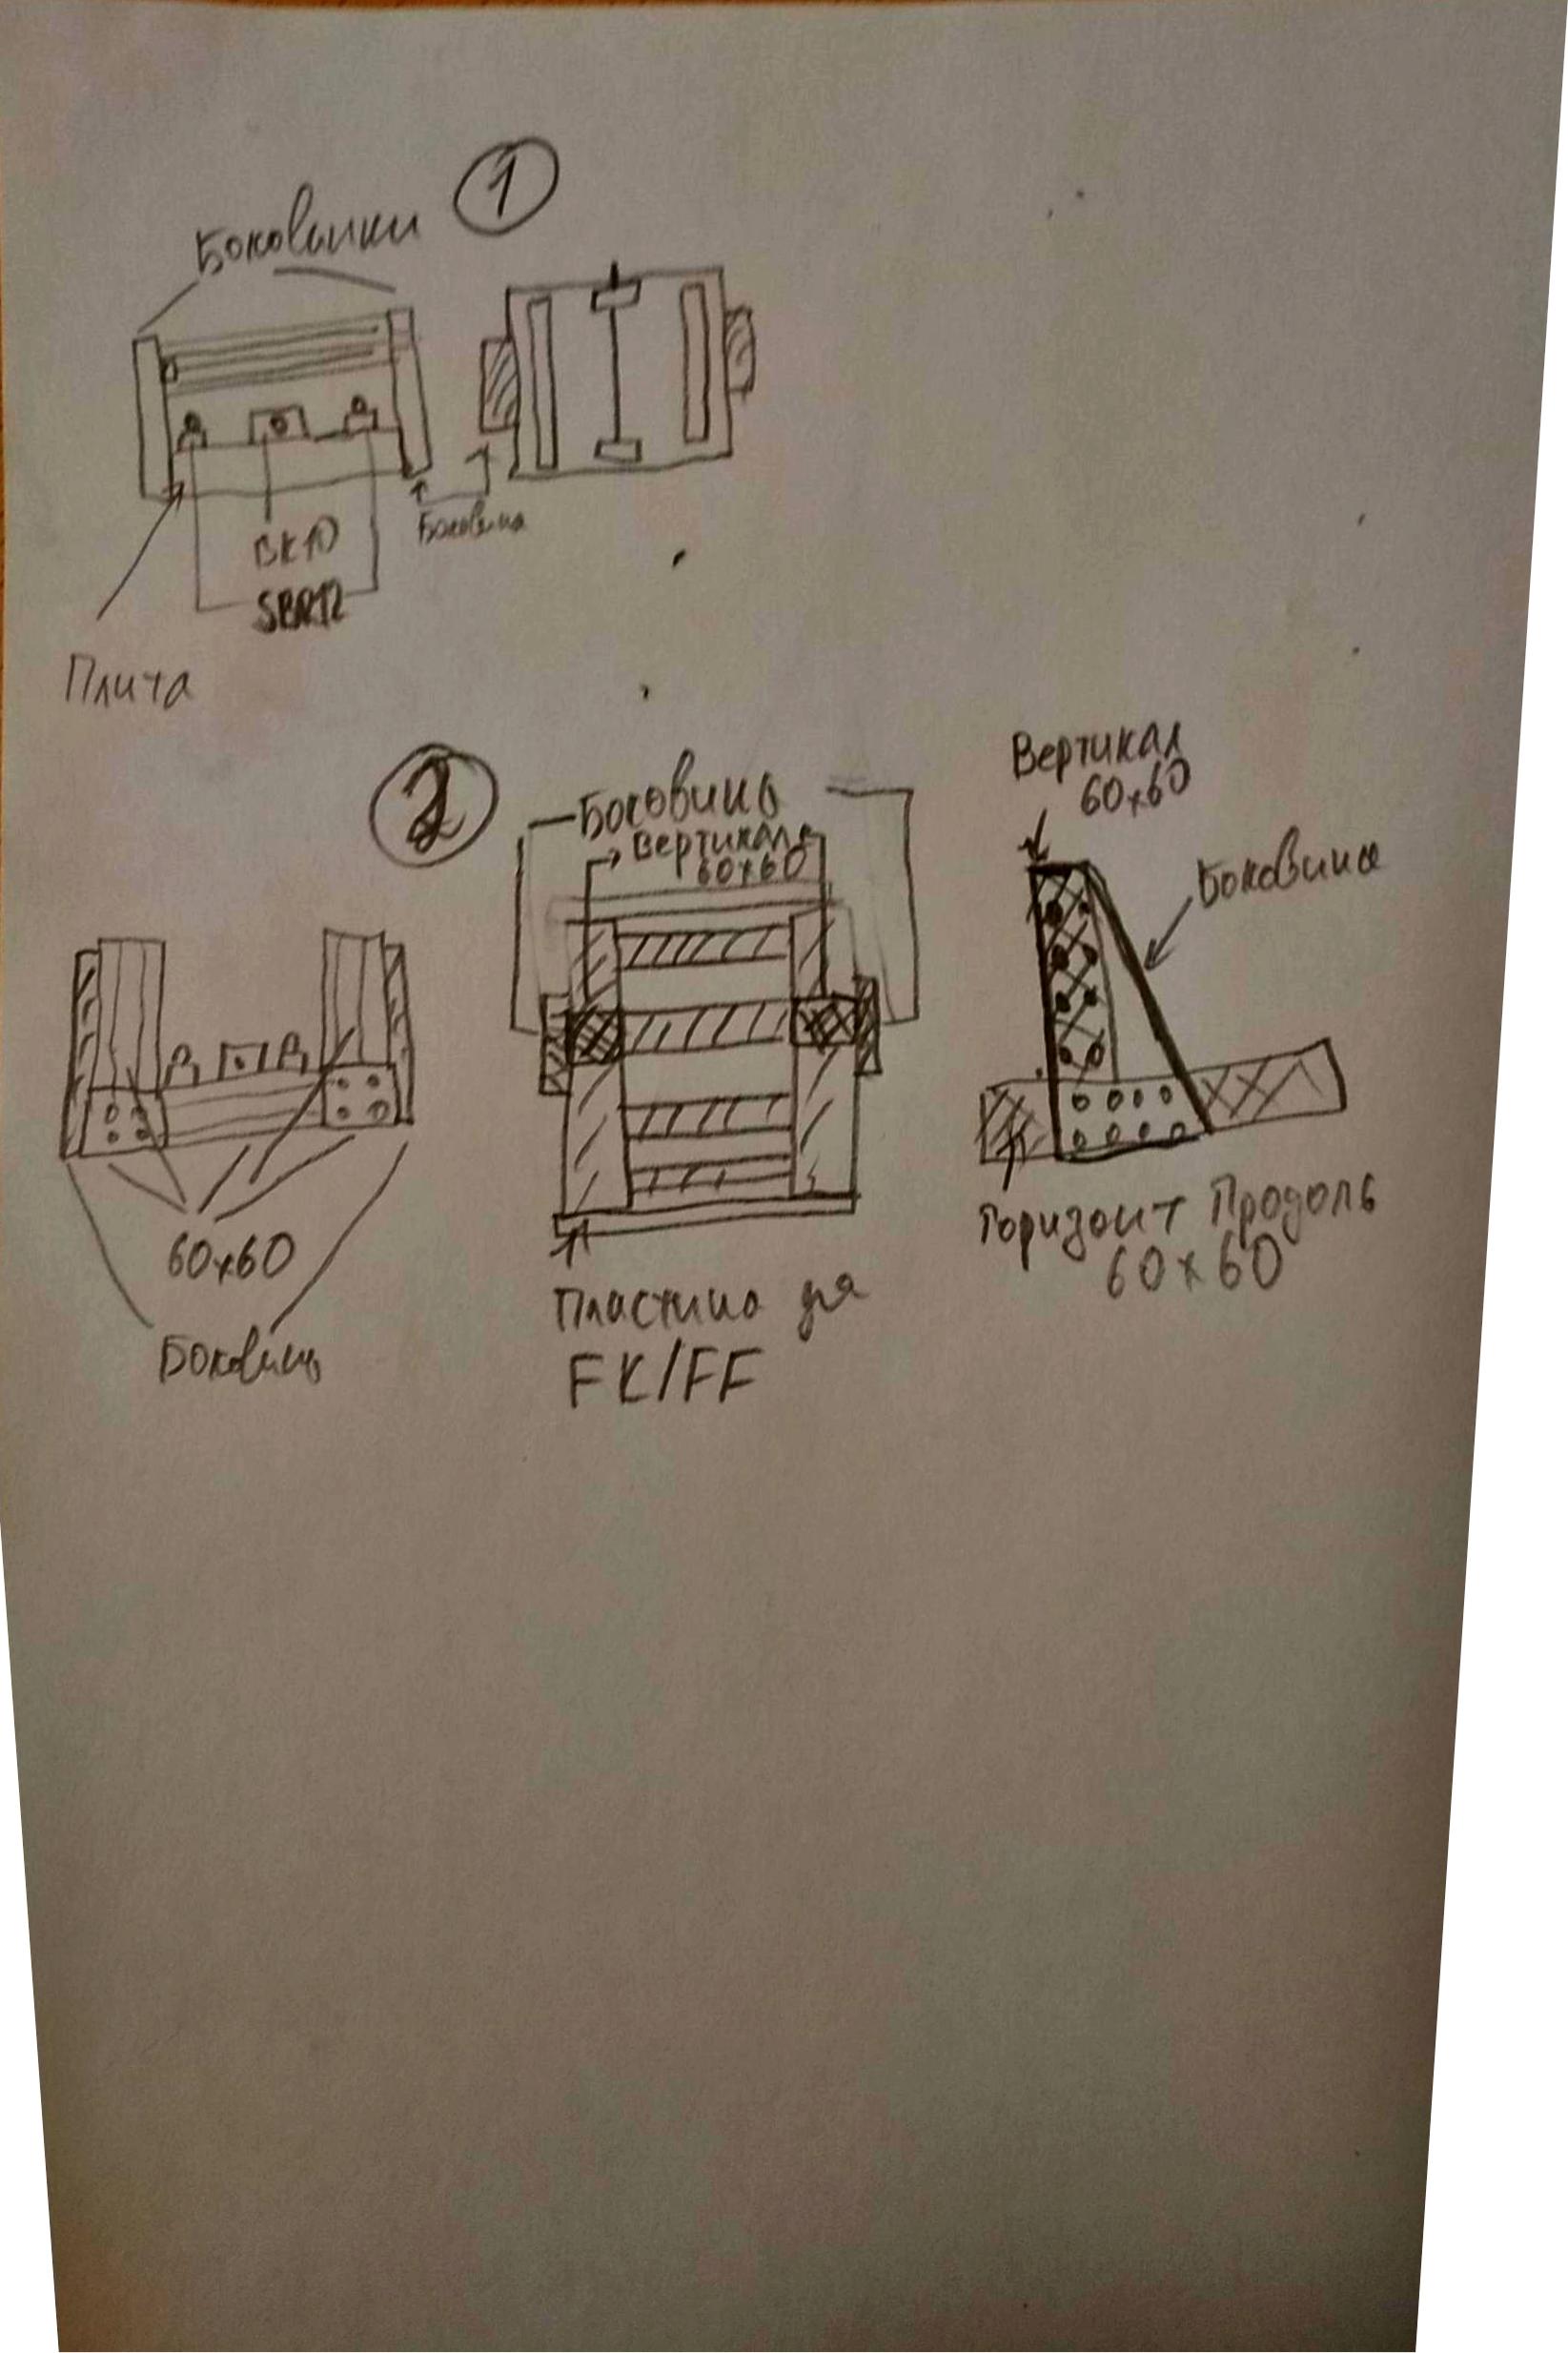 1
Боковинки
Боковина
BK10
SBR12
Плита
2
Боковина
Вертикал
60x60
Вертикал
60x60
Боковина
60x60
Боковины
Горизонт Продоль
60x60
Пластина для
FK/FF